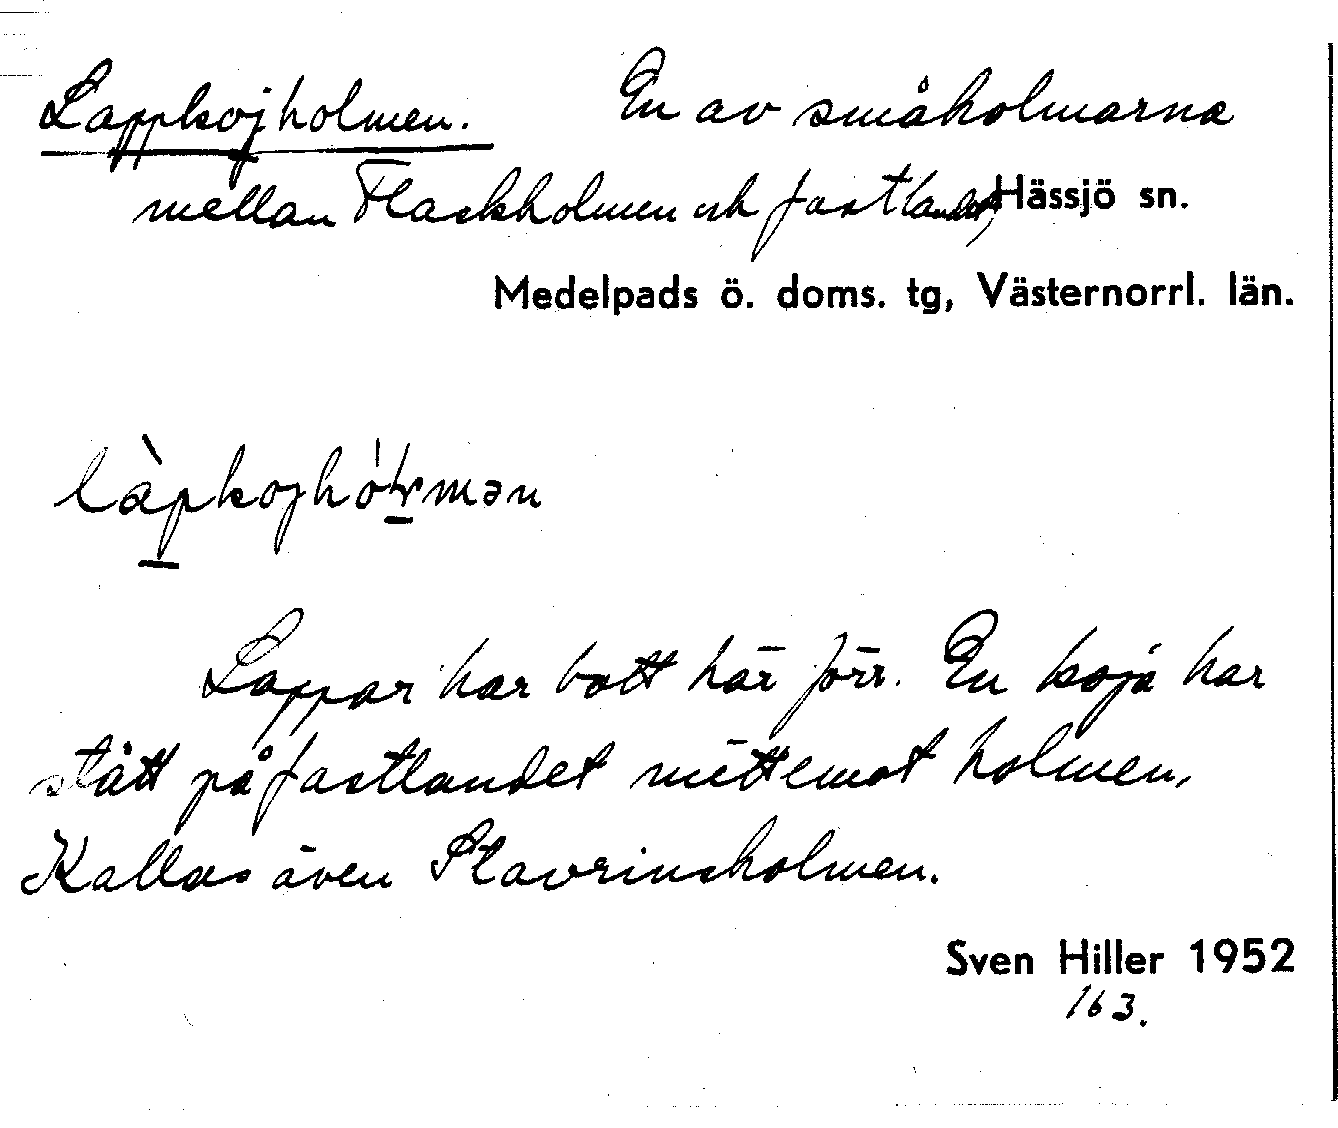 Lappkojholmen. En av småholmarna
mellan Flaskholmen och fastlandet, Hässjö sn.
Medelpads ö. doms. tg, Västernorrl. län.
Lappar har bott här förr. En koja har
stått på fastlandet mittemot holmen.
Kallas även Stavrinsholmen.
Sven Hiller 1952
163.